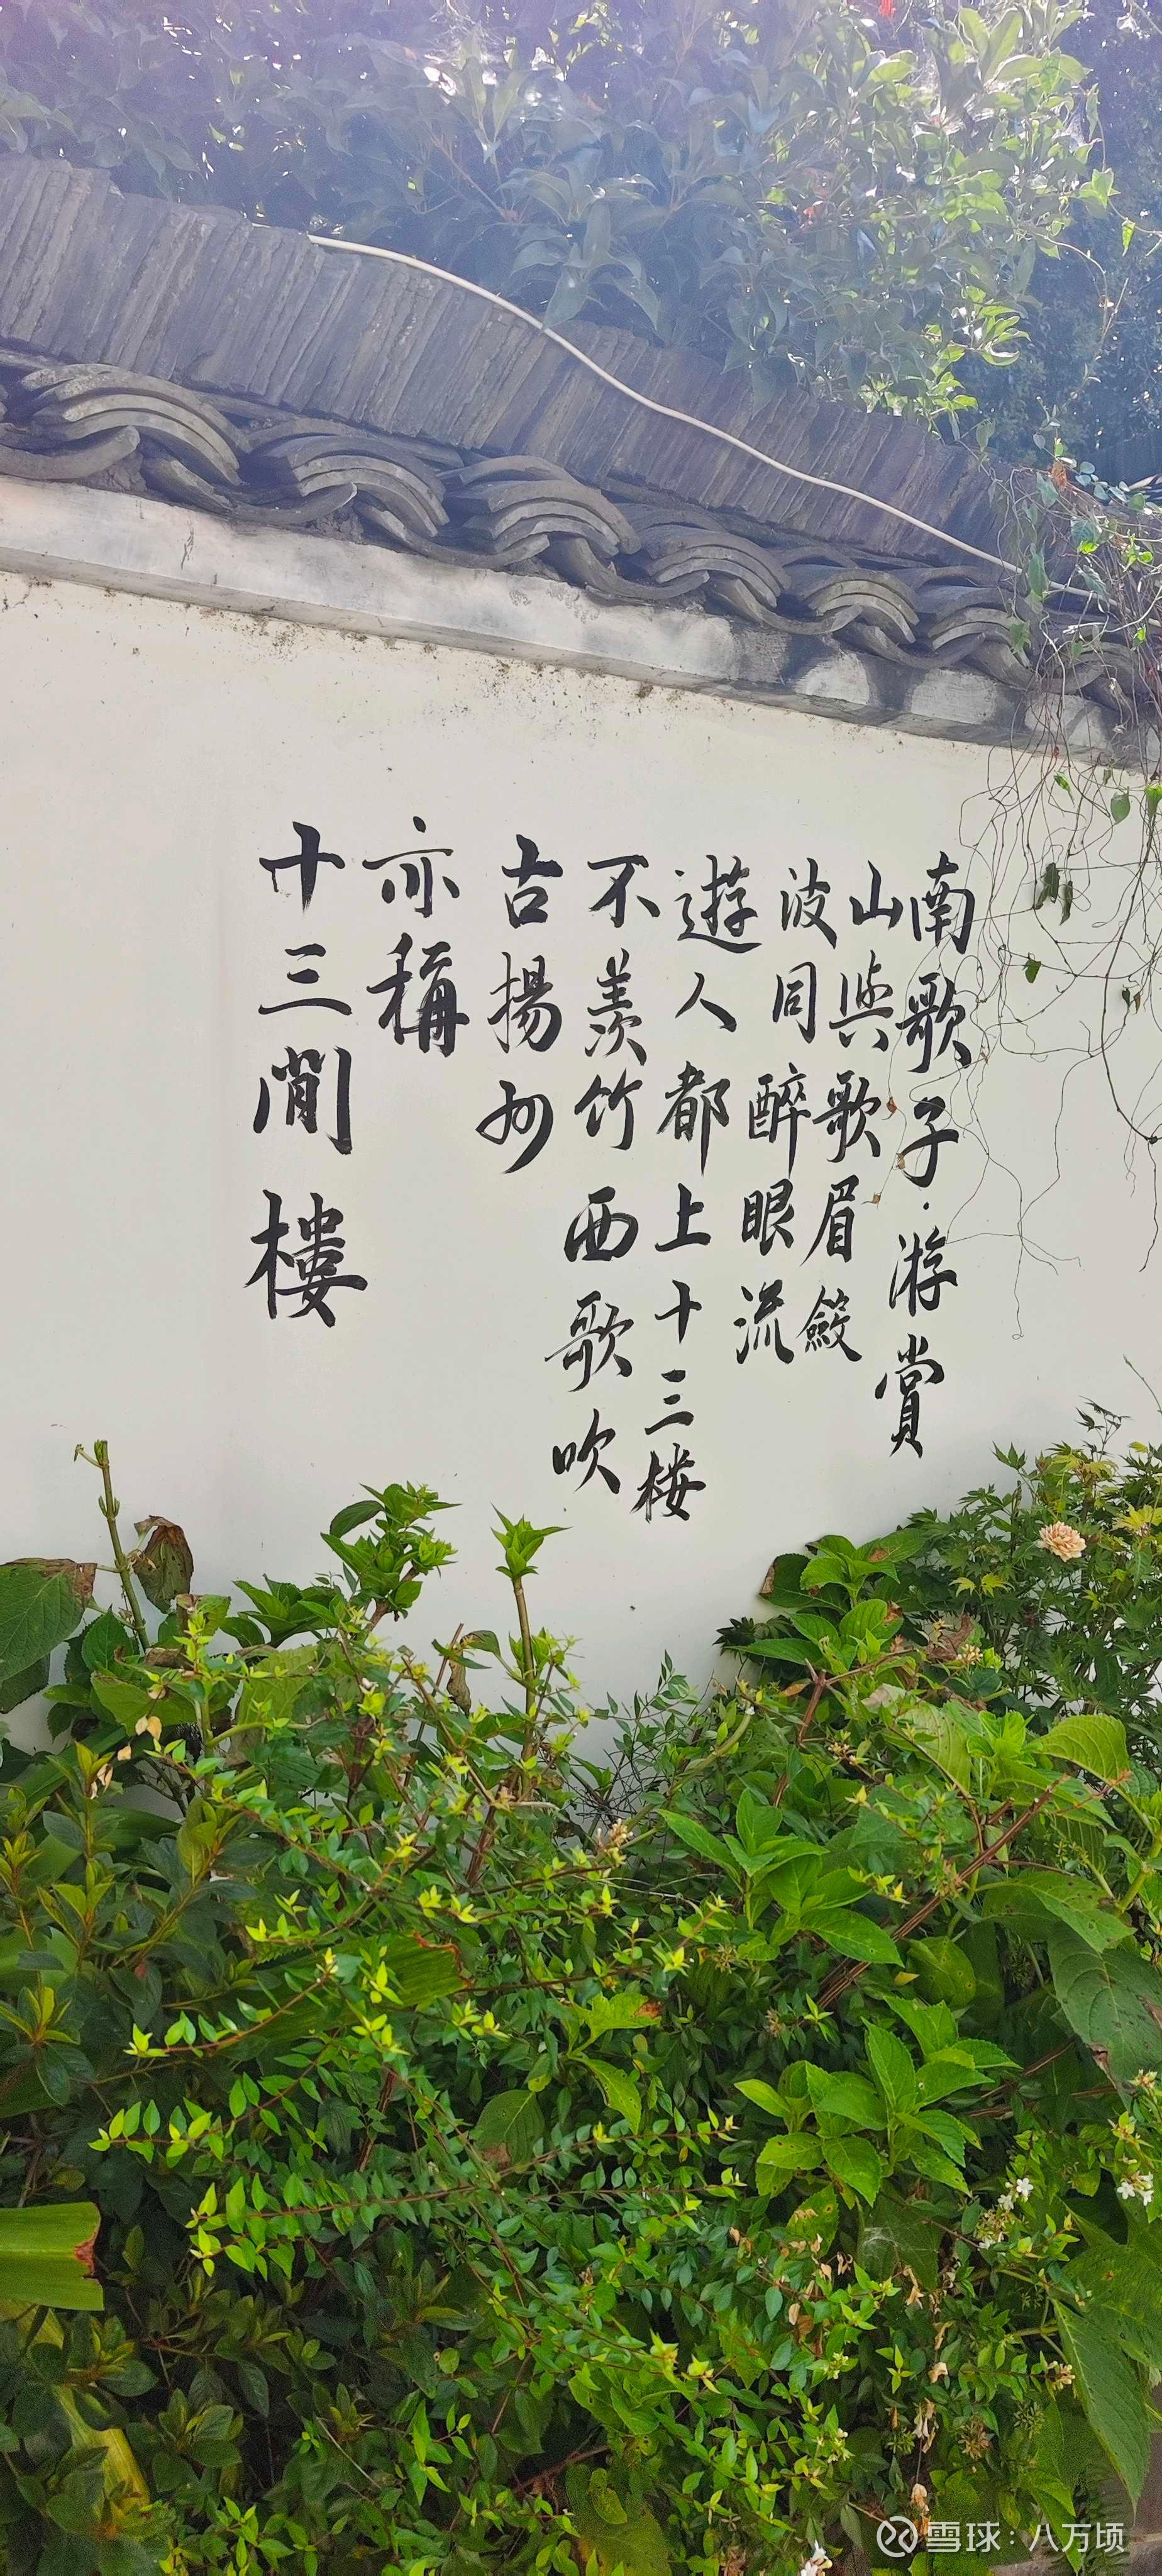 南歌子·游賞
山與歌眉斂
波同醉眼流
遊人都上十三楼
不羨竹西歌吹
古揚州
亦稱
十三閒樓
雪球：八万顷